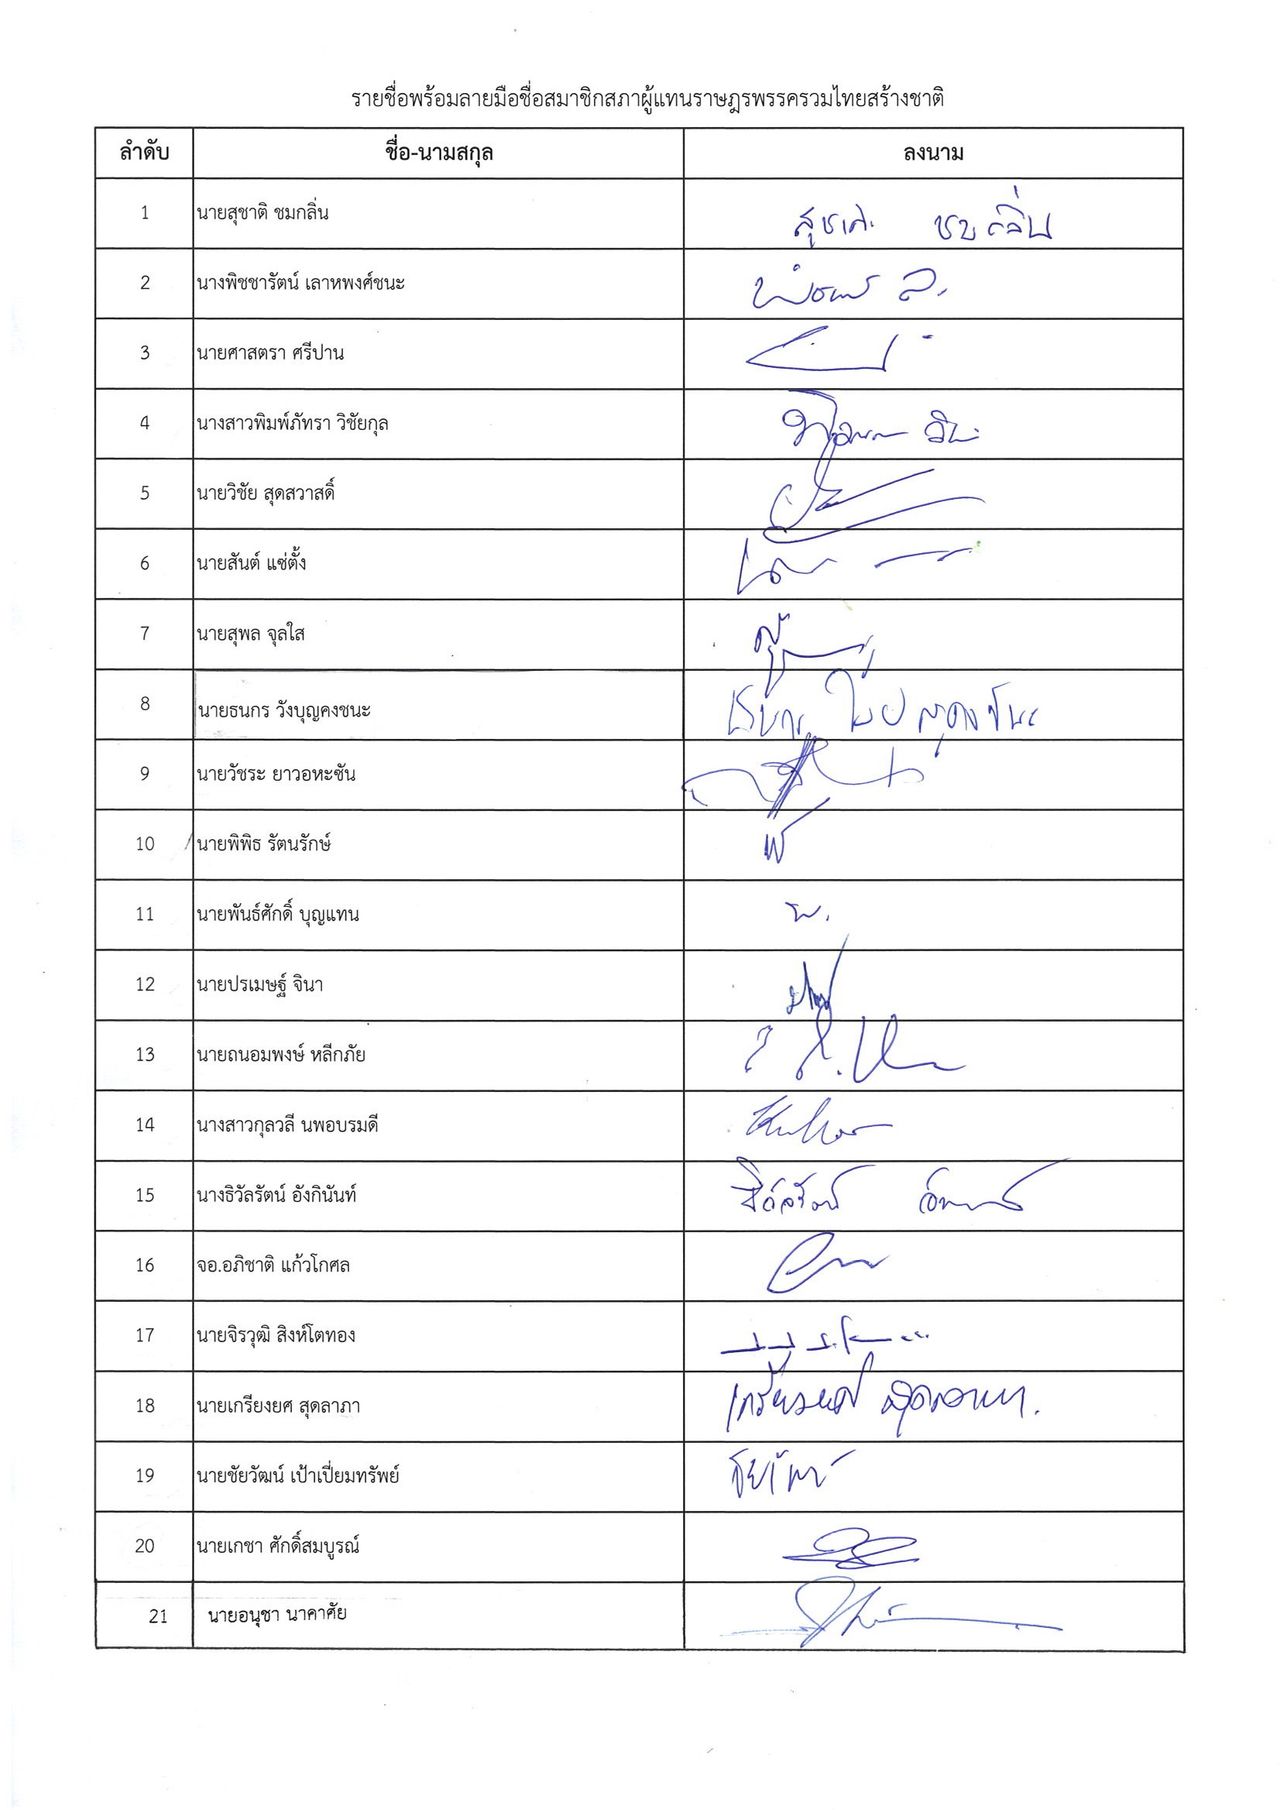 รายชื่อพร้อมลายมือชื่อสมาชิกสภาผู้แทนราษฎรพรรครวมไทยสร้างชาติ
ลำดับ ชื่อ-นามสกุล ลงนาม
1 นายสุชาติ ชมกลิ่น สุชาติ ชมกลิ่น
2 นางพิชชารัตน์ เลาหพงศ์ชนะ
3 นายศาสตรา ศรีปาน
4 นางสาวพิมพ์ภัทรา วิชัยกุล
5 นายวิชัย สุดสวาสดิ์
6 นายสันต์ แซ่ตั้ง
7 นายสุพล จุลใส
8 นายธนกร วังบุญคงชนะ
9 นายวัชระ ยาวอหะซัน
10 นายพิพิธ รัตนรักษ์
11 นายพันธ์ศักดิ์ บุญแทน
12 นายปรเมษฐ์ จินา
13 นายถนอมพงษ์ หลีกภัย
14 นางสาวกุลวลี นพอมรบดี
15 นางธิวัลรัตน์ อังกินันท์
16 จอ.อภิชาติ แก้วโกศล
17 นายจิรวุฒิ สิงห์โตทอง
18 นายเกรียงยศ สุดลาภา เกรียงยศ สุดลาภา
19 นายชัยวัฒน์ เป้าเปี่ยมทรัพย์
20 นายเกชา ศักดิ์สมบูรณ์
21 นายอนุชา นาคาศัย